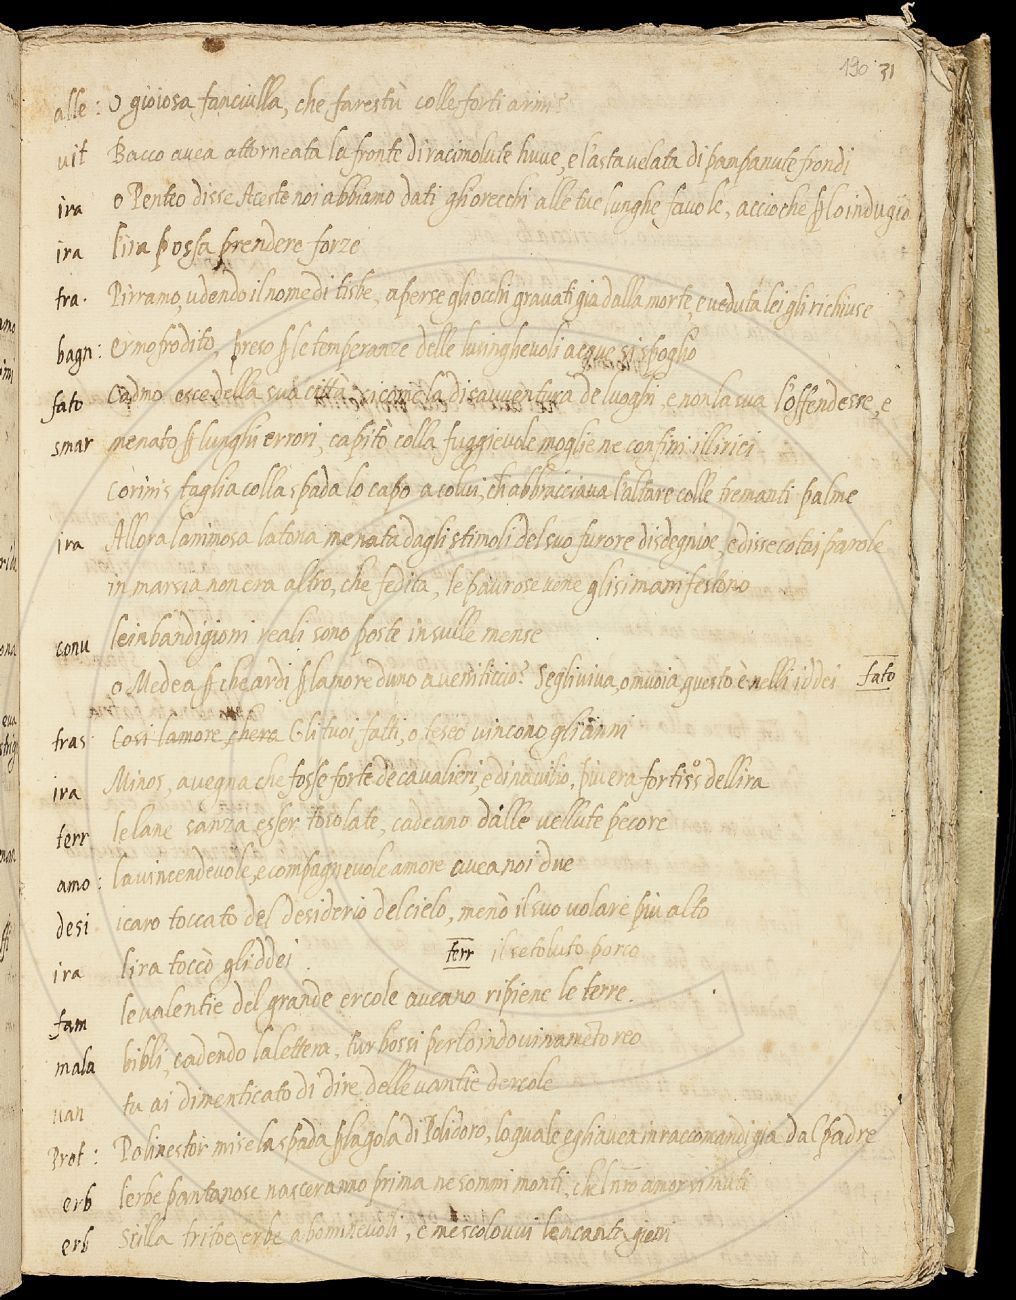 190 31
alle: O gioiosa fanciulla, che farestù colle forti armi?
vit Bacco avea attorneata la fronte di racimolute huve, e l'asta velata di pampanute frondi
ira o Penteo disse Aceste noi abbiamo dati gliorecchi alle tue lunghe favole, accioche ꝑ lo indugio
ira l'ira possa prendere forze
fra. Pirramo, udendo il nome di tisbe, aperse gliocchi gravati gia dalla morte, e veduta lei gli richiuse
bagn: Ermofrodito, preso ꝑ le temperanze delle lusinghevoli acque si spoglio
fato Cadmo esce della sua città, sicome la disavventura de luoghi, e non la sua l'offendesse, e
smar menato ꝑ lunghi errori, capitò colla fuggievole moglie ne confini illirici
Corimis taglia colla spada lo capo a colui, ch abbracciava l'altare colle tremanti palme
ira Allora l'animosa latona menata dagli stimoli del suo furore disdegnioe, e disse cotai parole
in marsia non era altro, che fedita, le paurose vene gli si manifestono
conv le inbandigioni reali sono poste in sulle mense
o Medea ꝑ che ardi ꝑ l'amore d'uno aveniticcio? Segli viva, o muoia, questo è nelli iddei fato
fras Cosi lamore, chera Gli tuoi fatti, o teseo vincono gli anni
ira Minos, avegna che fosse forte de cavalieri, e di navilio, piu era fortiss.o dell ira
terr le lane sanza esser tosolate, cadeano dalle vellute pecore
amo: la vincendevole, e compagnevole amore avea noi due
desi icaro toccato del desiderio del cielo, menò il suo volare piu alto
ira l'ira toccò gl'iddei terr il setoluto porco
fam le valentie del grande ercole aveano ripiene le terre.
mala bibli, cadendo la lettera, turbossi per lo indovinamēto reo
van tu ai dimenticato di dire delle vantie dercole
Prot: Polinestor mise la spada ꝑ la gola di Polidoro, lo quale egli avea in raccomandigia dal padre
erb l'erbe pantanose nasceranno prima ne sommi monti, che l nr̄o amor si muti
erb Scilla tritoe erbe abominevoli, e mescolovvi le ncantagioni